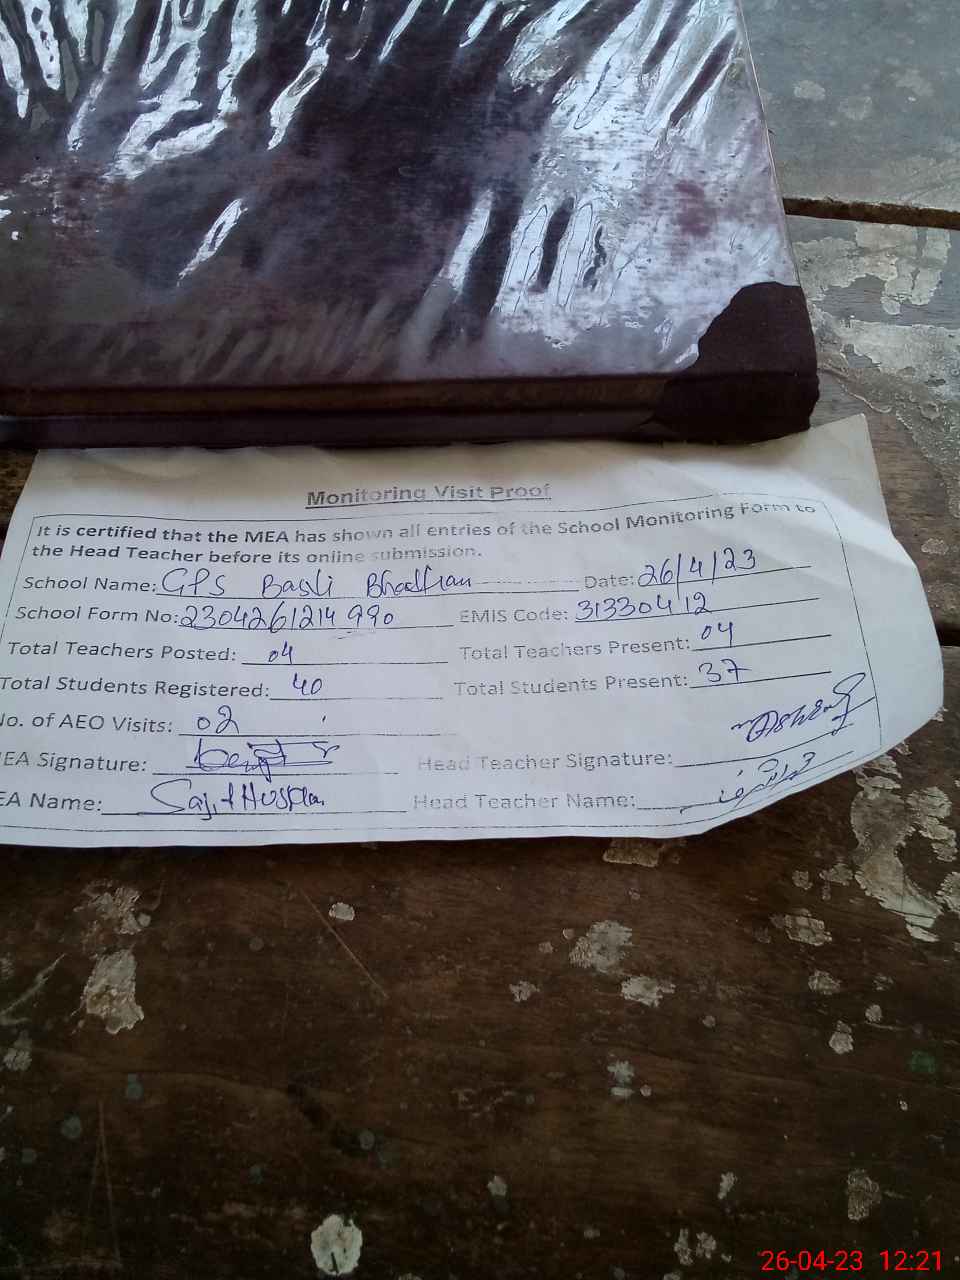 Monitoring Visit Proof
It is certified that the MEA has shown all entries of the School Monitoring Form to
the Head Teacher before its online submission.
School Name: GPS Basti Date: 26/4/23
School Form No: 2304261214990 EMIS Code: 31330412
Total Teachers Posted: 04 Total Teachers Present: 04
Total Students Registered: 40 Total Students Present: 37
No. of AEO Visits: 02
EA Signature: Head Teacher Signature:
EA Name: Head Teacher Name:
26-04-23 12:21